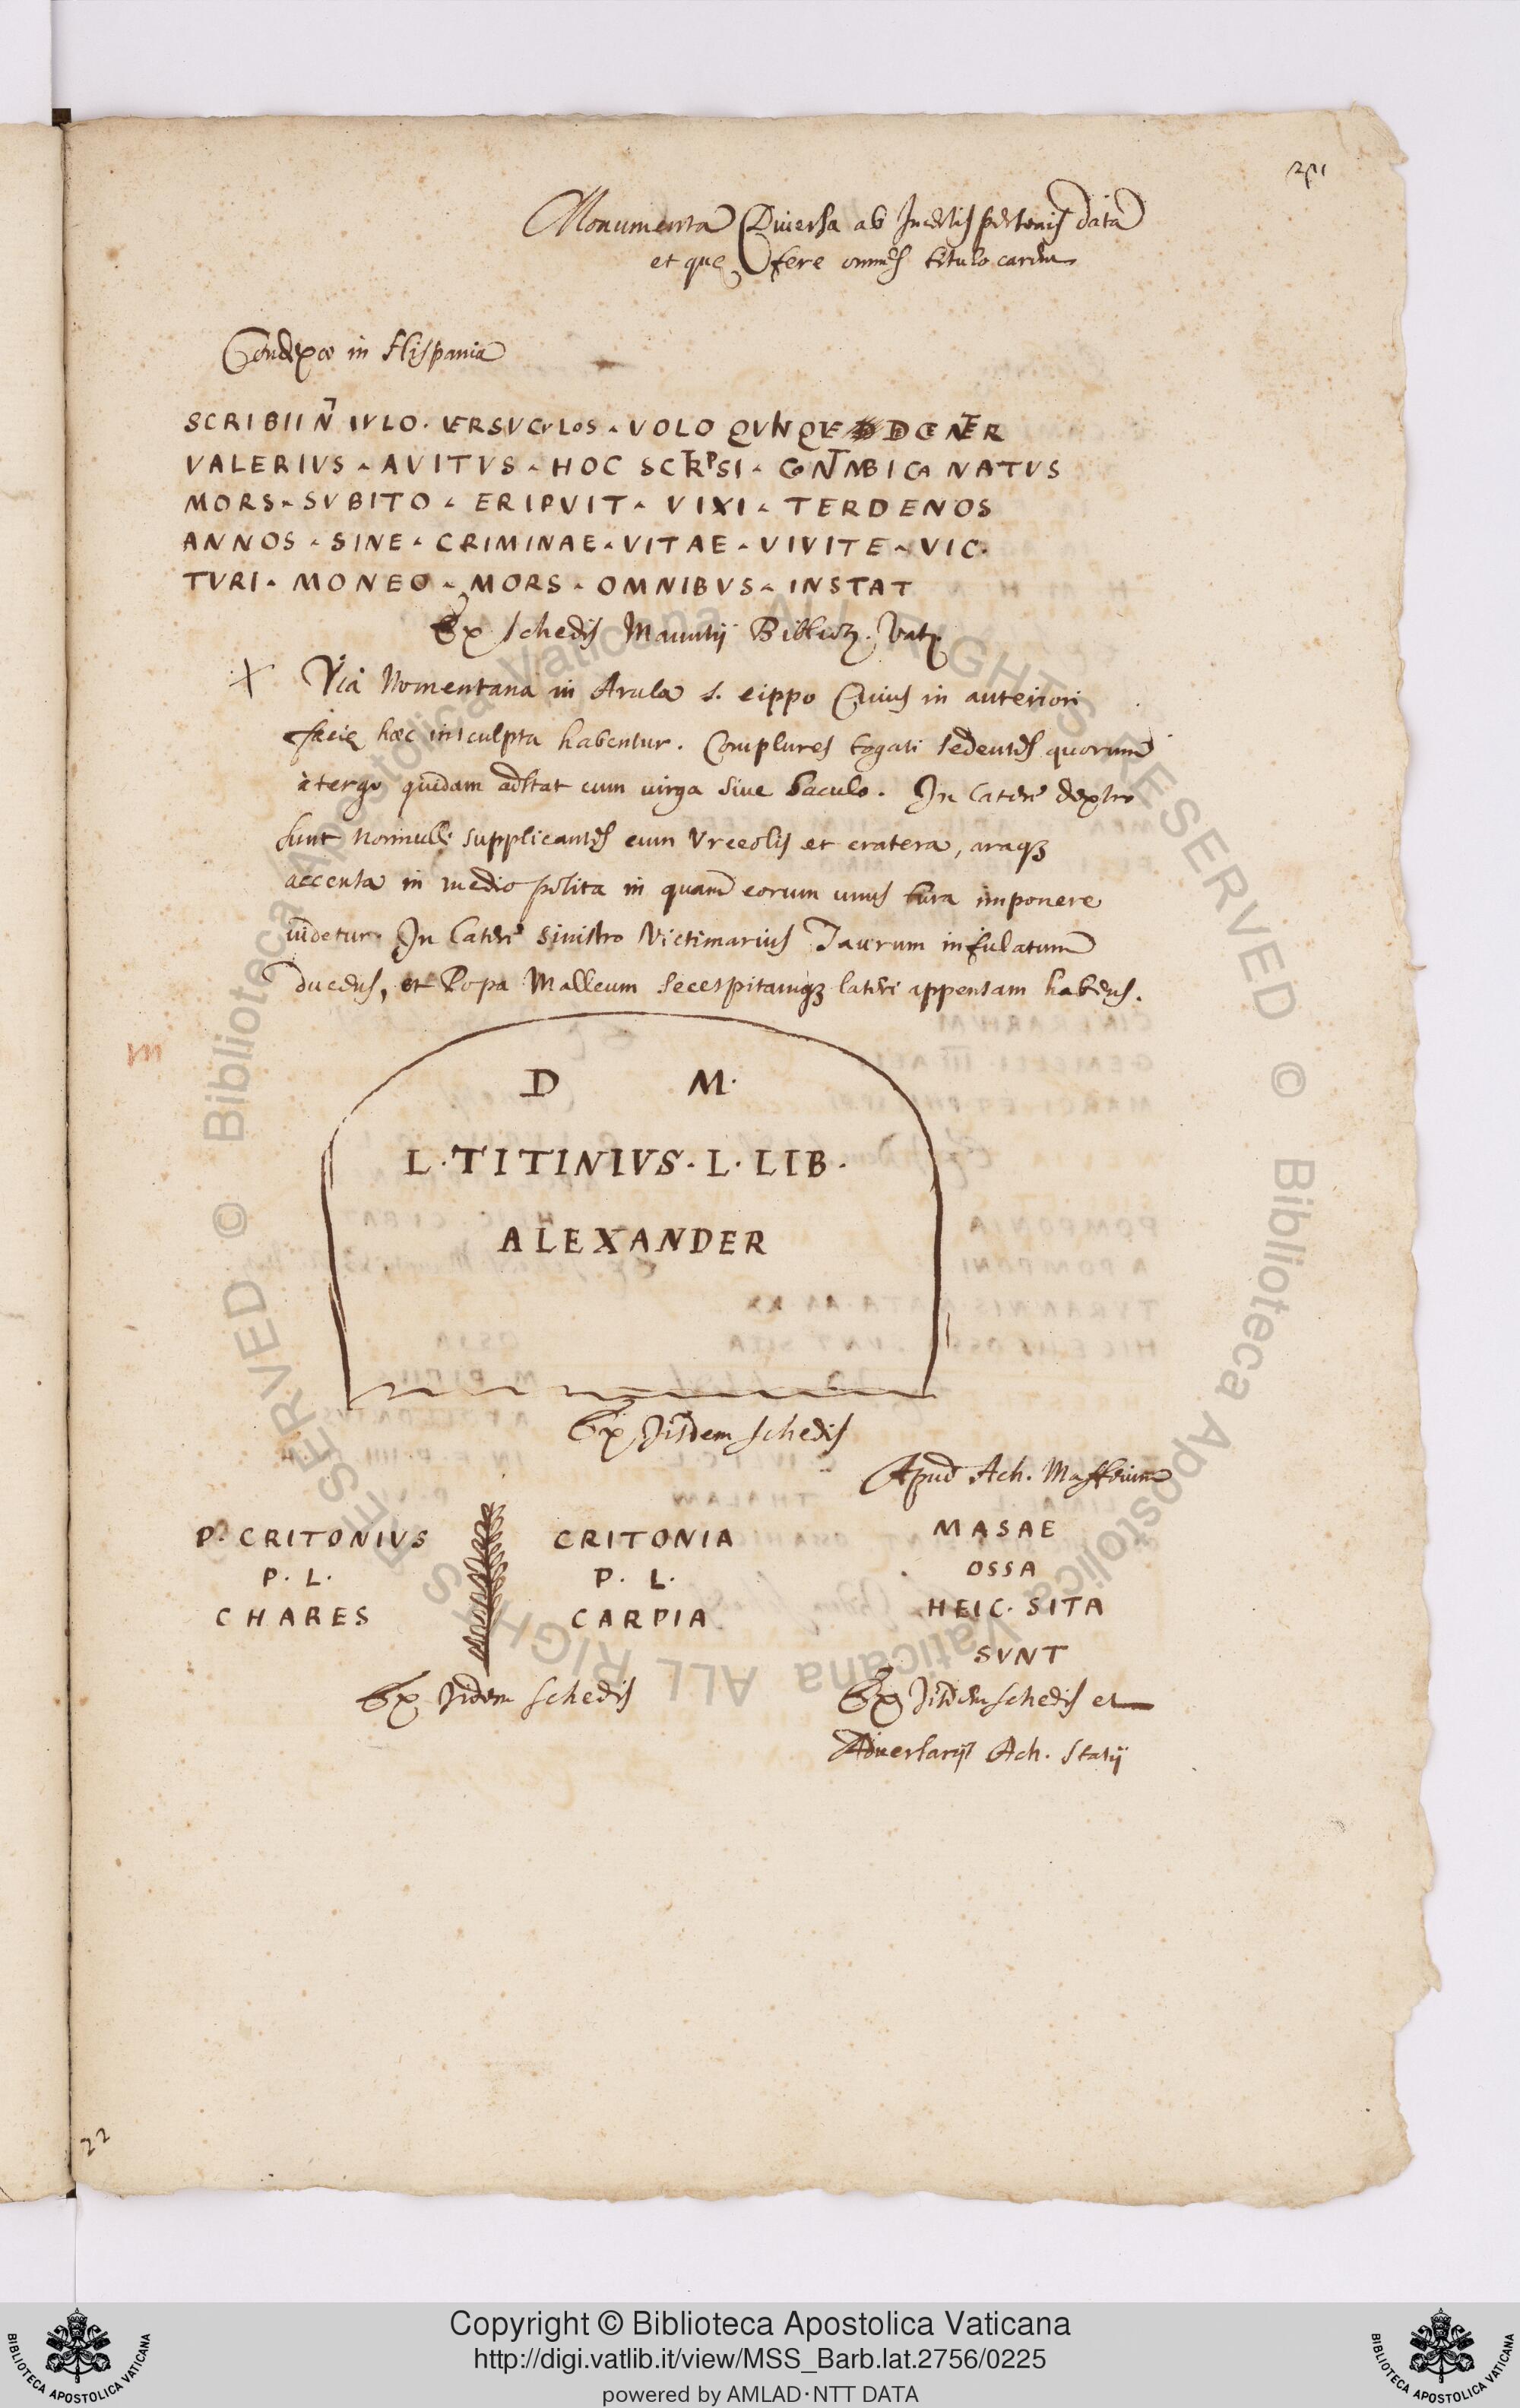 211
Monumenta Diuersa ab Incertis personis data
et que fere omnes titulo carent
in Hispania
SCRIBI IN TITVLO. VERSVCVLOS VOLO QVINQVE DECENTER
VALERIVS AVITVS HOC SCRIPSI CONTMBICA NATVS
MORS SVBITO ERIPVIT VIXI TERDENOS
ANNOS SINE CRIMINAE VITAE VIVITE VIC
TVRI MONEO MORS OMNIBVS INSTAT
Ex schedis Manutij Biblioth. Vat.
Via Nomentana in Arula s. cippo Cuius in anteriori
facie hæc insculpta habentur. Complures togati sedentes quorum
à tergo quidam adstat cum uirga siue baculo. In latere dextro
sunt nonnulli supplicantes cum Vrceolis et cratera, araq;
accensa in medio posita in quam eorum unus tura imponere
uidetur. In latere sinistro Victimarius Taurum infulatum
ducens, et Popa Malleum secespitamq; lateri appensam habens.
m
D M.
L. TITINIVS. L. LIB.
ALEXANDER
Ex Jisdem schedis
Apud Ach. Maffeium
P. CRITONIVS
P. L.
CHARES
CRITONIA
P. L.
CARPIA
MASAE
OSSA
HEIC. SITA
SVNT
Ex Jisdem schedis
Ex Jisdem schedis et
Aduersarijs Ach. Statij
22
© Biblioteca Apostolica Vaticana ALL RIGHTS RESERVED
© Biblioteca Apostolica Vaticana ALL RIGHTS RESERVED
Copyright © Biblioteca Apostolica Vaticana
http://digi.vatlib.it/view/MSS_Barb.lat.2756/0225
powered by AMLAD·NTT DATA
BIBLIOTECA APOSTOLICA VATICANA
BIBLIOTECA APOSTOLICA VATICANA